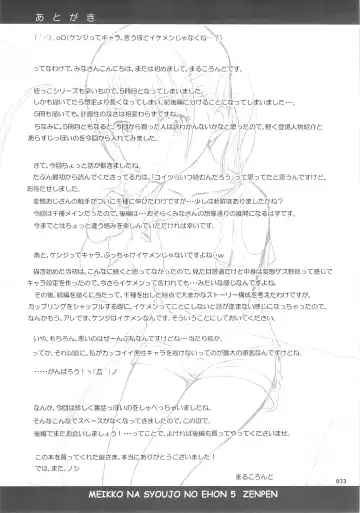 あとがき
(´-`).｡oO(ケンジってキャラ、言うほどイケメンじゃなくね…？)
ってなわけで、みなさんこんにちは、または初めまして、まるころんとです。
姪っこシリーズも早いもので、5冊目となってしまいました。
しかも描いてたら想定より長くなってしまいまして、前後編に分けることになってしまいました…。
5冊も描いても、計画性のなさは相変わらずですね。
ちなみに、5冊目ともなると、今回から買った人は訳わかんないかなと思ったので、軽く登場人物紹介と
あらすじっぽいのを今回から入れてみました。
さて、今回ちょっと話が動きましたね。
たぶん最初から読んでくださってる方は、「コイツらいつ絡むんだろう」って思ってたと思うんですけど、
お待たせしました。
変態おじさんの触手がついに千種に伸びたわけですが…少しは新鮮味ありましたかね？
今回は千種メインだったので、後編は…おそらくみなさんの想像通りの展開になるはずです。
今までとはちょっと違う絡みを楽しんでいただければ幸いです。
あと、ケンジってキャラ、ぶっちゃけイケメンじゃないですよねｗ
描き始めた当初は、こんなに続くと思ってなかったので、見た目普通だけど中身は変態ゲス野郎って感じで
キャラ設定を作ったので、今さらイケメンって言われても…みたいな感じなんですよね。
その後、続編を描くに当たって、千種を出した時点で大まかなストーリー構成を考えたわけですが、
カップリングをシャッフルする際に、イケメンってことにしないと話が進まない感じになってしまったので、
なんかもう、アレです、ケンジはイケメンなんです。そういうことにしておいてください。
いや、もちろん、悪いのはぜーんぶ私なんですけどね…当たり前か。
ってか、それ以前に、私がカッコイイ男性キャラを描けないってのが最大の原因なんですけどね。
……がんばろう！ヽ(`Д´)ノ
なんか、今回は珍しく裏話っぽいのをしゃべっちゃいましたね。
そんなこんなでスペースがなくなってきましたので、この辺で。
後編でまたお会いしましょう！…ってことで、よければ後編も買ってやってくださいませ。
この本を買ってくれた皆さま、本当にありがとうございました！
では、また、ノシ
まるころんと
033
MEIKKO NA SYOUJO NO EHON 5 ZENPEN